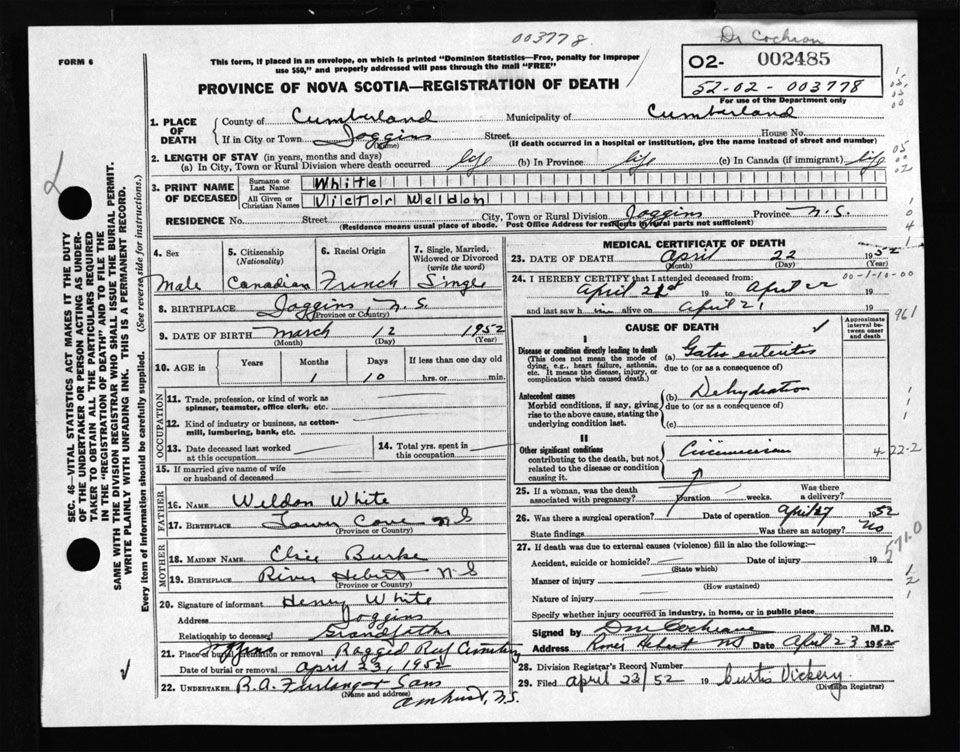 Dr Cochran
003778
FORM 6
This form, if placed in an envelope, on which is printed "Dominion Statistics—Free, penalty for improper use $50," and properly addressed will pass through the mail "FREE"
PROVINCE OF NOVA SCOTIA—REGISTRATION OF DEATH
02- 002485
52-02-003778
For use of the Department only
SEC. 46—VITAL STATISTICS ACT MAKES IT THE DUTY
OF THE UNDERTAKER OR PERSON ACTING AS UNDER-
TAKER TO OBTAIN ALL THE PARTICULARS REQUIRED
IN THE "REGISTRATION OF DEATH" AND TO FILE THE
SAME WITH THE DIVISION REGISTRAR WHO SHALL ISSUE THE BURIAL PERMIT.
WRITE PLAINLY WITH UNFADING INK. THIS IS A PERMANENT RECORD.
Every item of information should be carefully supplied. (See reverse side for instructions.)
1. PLACE OF DEATH
County of Cumberland Municipality of Cumberland
If in City or Town Joggins Street House No.
(Name) (If death occurred in a hospital or institution, give the name instead of street and number)
2. LENGTH OF STAY (in years, months and days)
(a) In City, Town or Rural Division where death occurred life (b) In Province life (c) In Canada (if immigrant) life
3. PRINT NAME OF DECEASED
Surname or Last Name White
All Given or Christian Names Victor Weldon
RESIDENCE No. Street City, Town or Rural Division Joggins Province N.S.
(Residence means usual place of abode. Post Office Address for residents in rural parts not sufficient)
4. Sex Male
5. Citizenship (Nationality) Canadian
6. Racial Origin French
7. Single, Married, Widowed or Divorced (write the word) Single
8. BIRTHPLACE Joggins N.S.
(Province or Country)
9. DATE OF BIRTH March 12 1952
(Month) (Day) (Year)
10. AGE in Years Months 1 Days 10 If less than one day old hrs. or min.
OCCUPATION
11. Trade, profession, or kind of work as spinner, teamster, office clerk, etc.
12. Kind of industry or business, as cotton-mill, lumbering, bank, etc.
13. Date deceased last worked at this occupation
14. Total yrs. spent in this occupation
15. If married give name of wife or husband of deceased
FATHER
16. NAME Weldon White
17. BIRTHPLACE Cove N S
MOTHER
18. MAIDEN NAME Elsie Burke
19. BIRTHPLACE River Hebert N S
(Province or Country)
20. Signature of informant Henry White
Address Joggins
Relationship to deceased Grandfather
21. Place of burial cremation or removal Joggins Ragged Reef Cemetery
Date of burial or removal April 23, 1952
22. UNDERTAKER R.A. Furlong & Sons
(Name and address)
Amherst, N.S.
MEDICAL CERTIFICATE OF DEATH
23. DATE OF DEATH April 22 1952
(Month) (Day) (Year)
00-1-10-00
24. I HEREBY CERTIFY that I attended deceased from:
April 19 to April 22 19
and last saw h alive on April 21 19
961
CAUSE OF DEATH
Approximate interval between onset and death
I
Disease or condition directly leading to death
(This does not mean the mode of dying, e.g., heart failure, asthenia, etc. It means the disease, injury, or complication which caused death.)
(a) Gastro enteritis
due to (or as a consequence of)
Antecedent causes
Morbid conditions, if any, giving rise to the above cause, stating the underlying condition last.
(b) Dehydration
due to (or as a consequence of)
(c)
II
Other significant conditions
contributing to the death, but not related to the disease or condition causing it.
Circumcision
4 22-2
25. If a woman, was the death associated with pregnancy? Duration weeks. Was there a delivery?
26. Was there a surgical operation? Date of operation April 1952
State findings Was there an autopsy? No
571.0
27. If death was due to external causes (violence) fill in also the following:—
Accident, suicide or homicide? Date of injury 19
(State which)
Manner of injury
(How sustained)
Nature of injury
Specify whether injury occurred in industry, in home, or in public place
Signed by Cochrane M.D.
Address River Hebert NS Date April 23 1952
28. Division Registrar's Record Number
29. Filed April 23/52 19 Curtis Vickery
(Division Registrar)